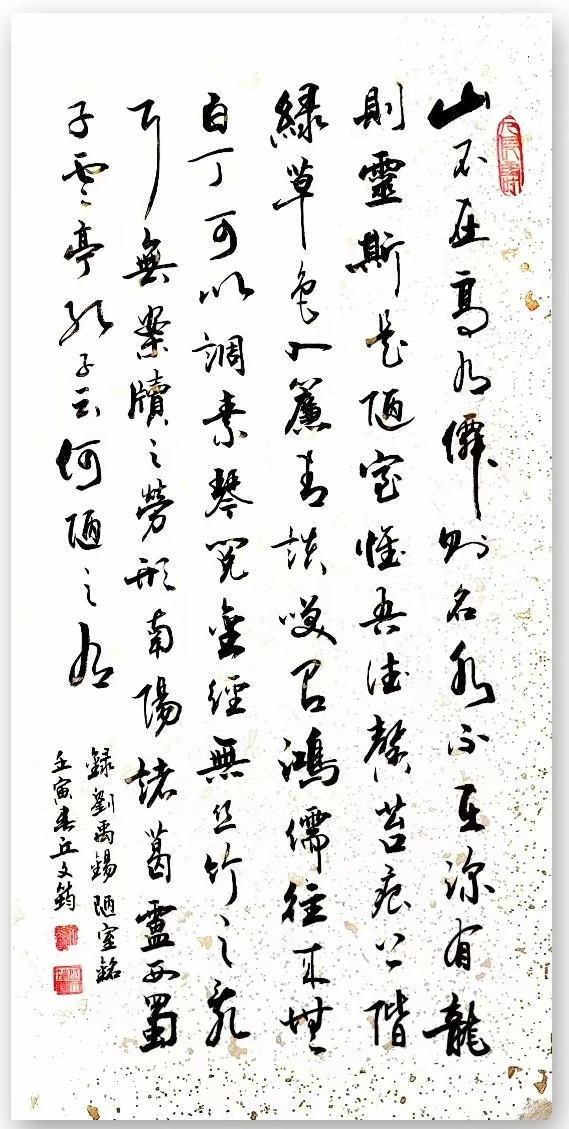 山不在高有僊則名水不在深有龍
則靈斯是陋室惟吾德馨苔痕上階
緑草色入簾青談咲有鴻儒往来無
白丁可以調素琴閲金經無丝竹之亂
耳無案牘之勞形南陽諸葛盧西蜀
子雲亭孔子云何陋之有
録劉禹錫陋室銘
壬寅春丘文鈞